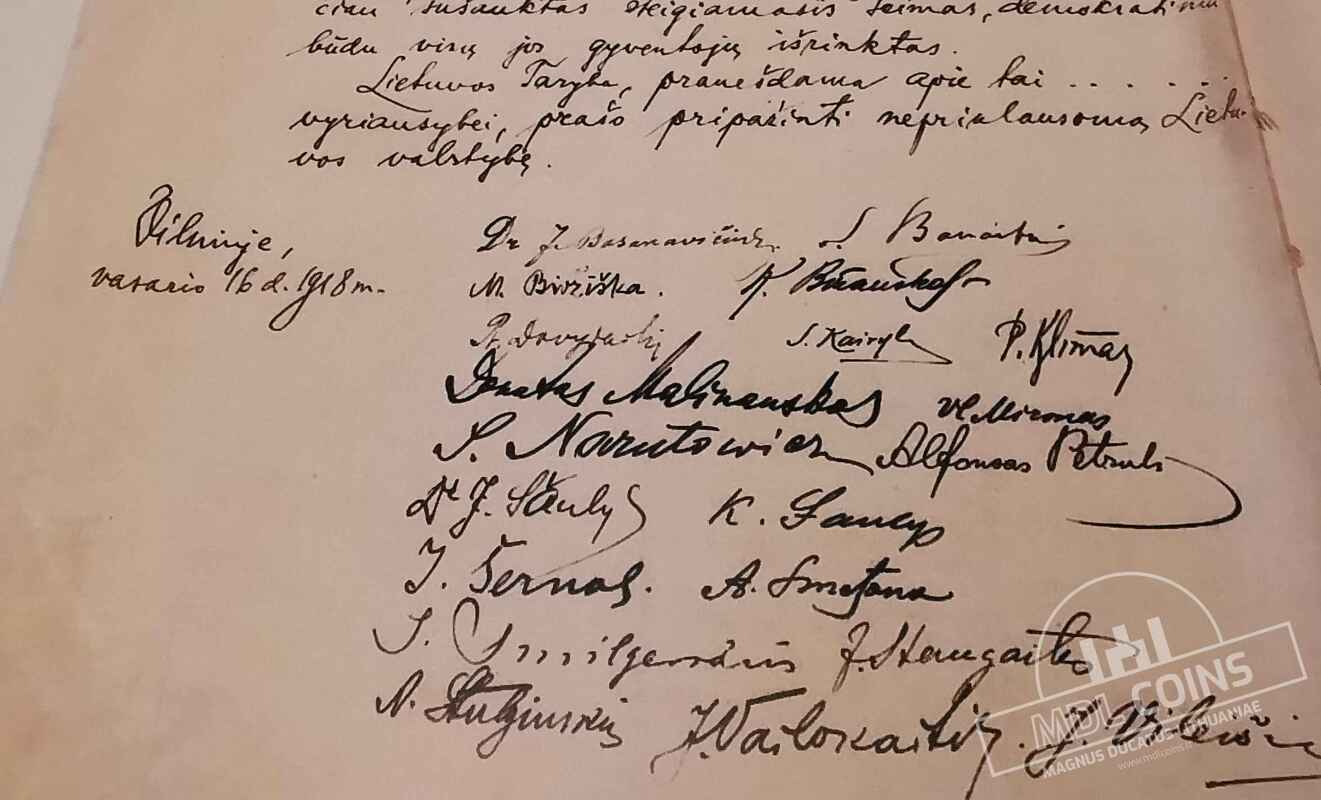 čiau sušauktas steigiamasis seimas, demokratiniu
būdu visų jos gyventojų išrinktas.
Lietuvos Taryba, pranešdama apie tai . . . . . .
vyriausybei, prašo pripažinti nepriklausomą Lietu-
vos valstybę.
Vilniuje,
vasario 16 d. 1918 m.
Dr J. Basanavičius. S. Banaitis
M. Biržiška. K. Bizauskas
Pr. Dovydaitis S. Kairys P. Klimas
Donatas Malinauskas Vl Mironas
S. Narutowicz Alfonsas Petrulis
Dr J. Šaulys K. Šaulys
J. Šernas. A. Smetona
J. Smilgevičius J. Staugaitis
A. Stulginskis J. Vailokaitis. J. Vileišis
MDL COINS
MAGNUS DUCATUS LITHUANIAE
www.mdlcoins.lt